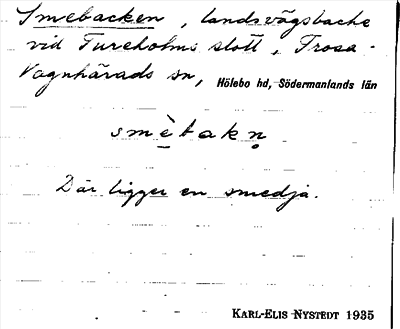 Smebacken, landsvägsbacke
vid Tureholms slott, Trosa-
Vagnhärads sn, Hölebo hd, Södermanlands län
smèbakn̥
Där ligger en smedja.
KARL-ELIS NYSTEDT 1935